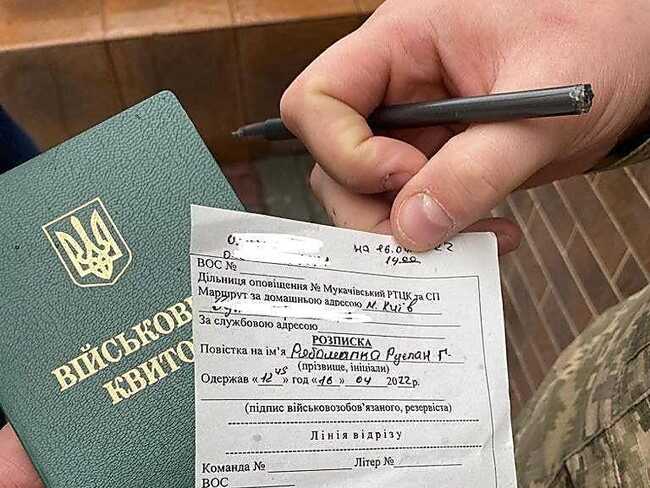 ВІЙСЬКОВ
КВИТО
на 16.04.22
14.00
ВОС №
Дільниця оповіщення № Мукачівський РТЦК та СП
Маршрут за домашньою адресою м. Київ
За службовою адресою
РОЗПИСКА
Повістка на ім'я Рябошапка Руслан Г.
(прізвище, ініціали)
Одержав «12 45» год «16» 04 2022р.
(підпис військовозобов'язаного, резервіста)
Лінія відрізу
Команда № Літер №
ВОС